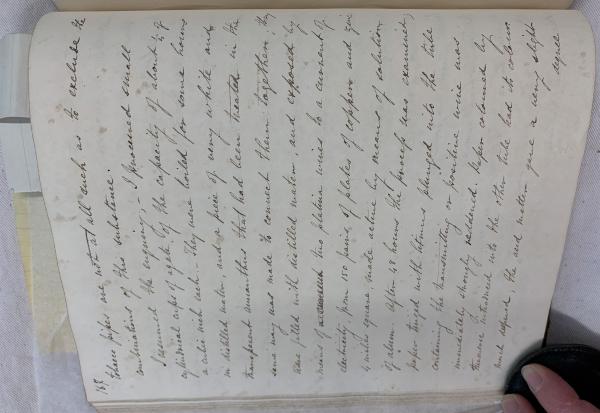 148
these pipes are not at all such as to exclude the
combinations of this substance.
I resumed the enquiry; – I procured small
cylindrical cups of agate of the capacity of about ¼ of
a cubic inch each. They were boiled for some hours
in distilled water, and a piece of very white and
transparent amianthus that had been treated in the
same way was made to connect them together; they
were filled with distilled water, and exposed by
means of two platina wires to a current of
electricity from 150 pairs of plates of copper and zinc
4 inches square made active by means of solution
of alum. After 48 hours the process was examined;
paper tinged with litmus plunged into the tube
containing the transmitting or positive wire was
immediately strongly reddened. Paper coloured by
turmeric introduced into the other tube had its colour
much deepened. The acid matter gave a very slight
degree